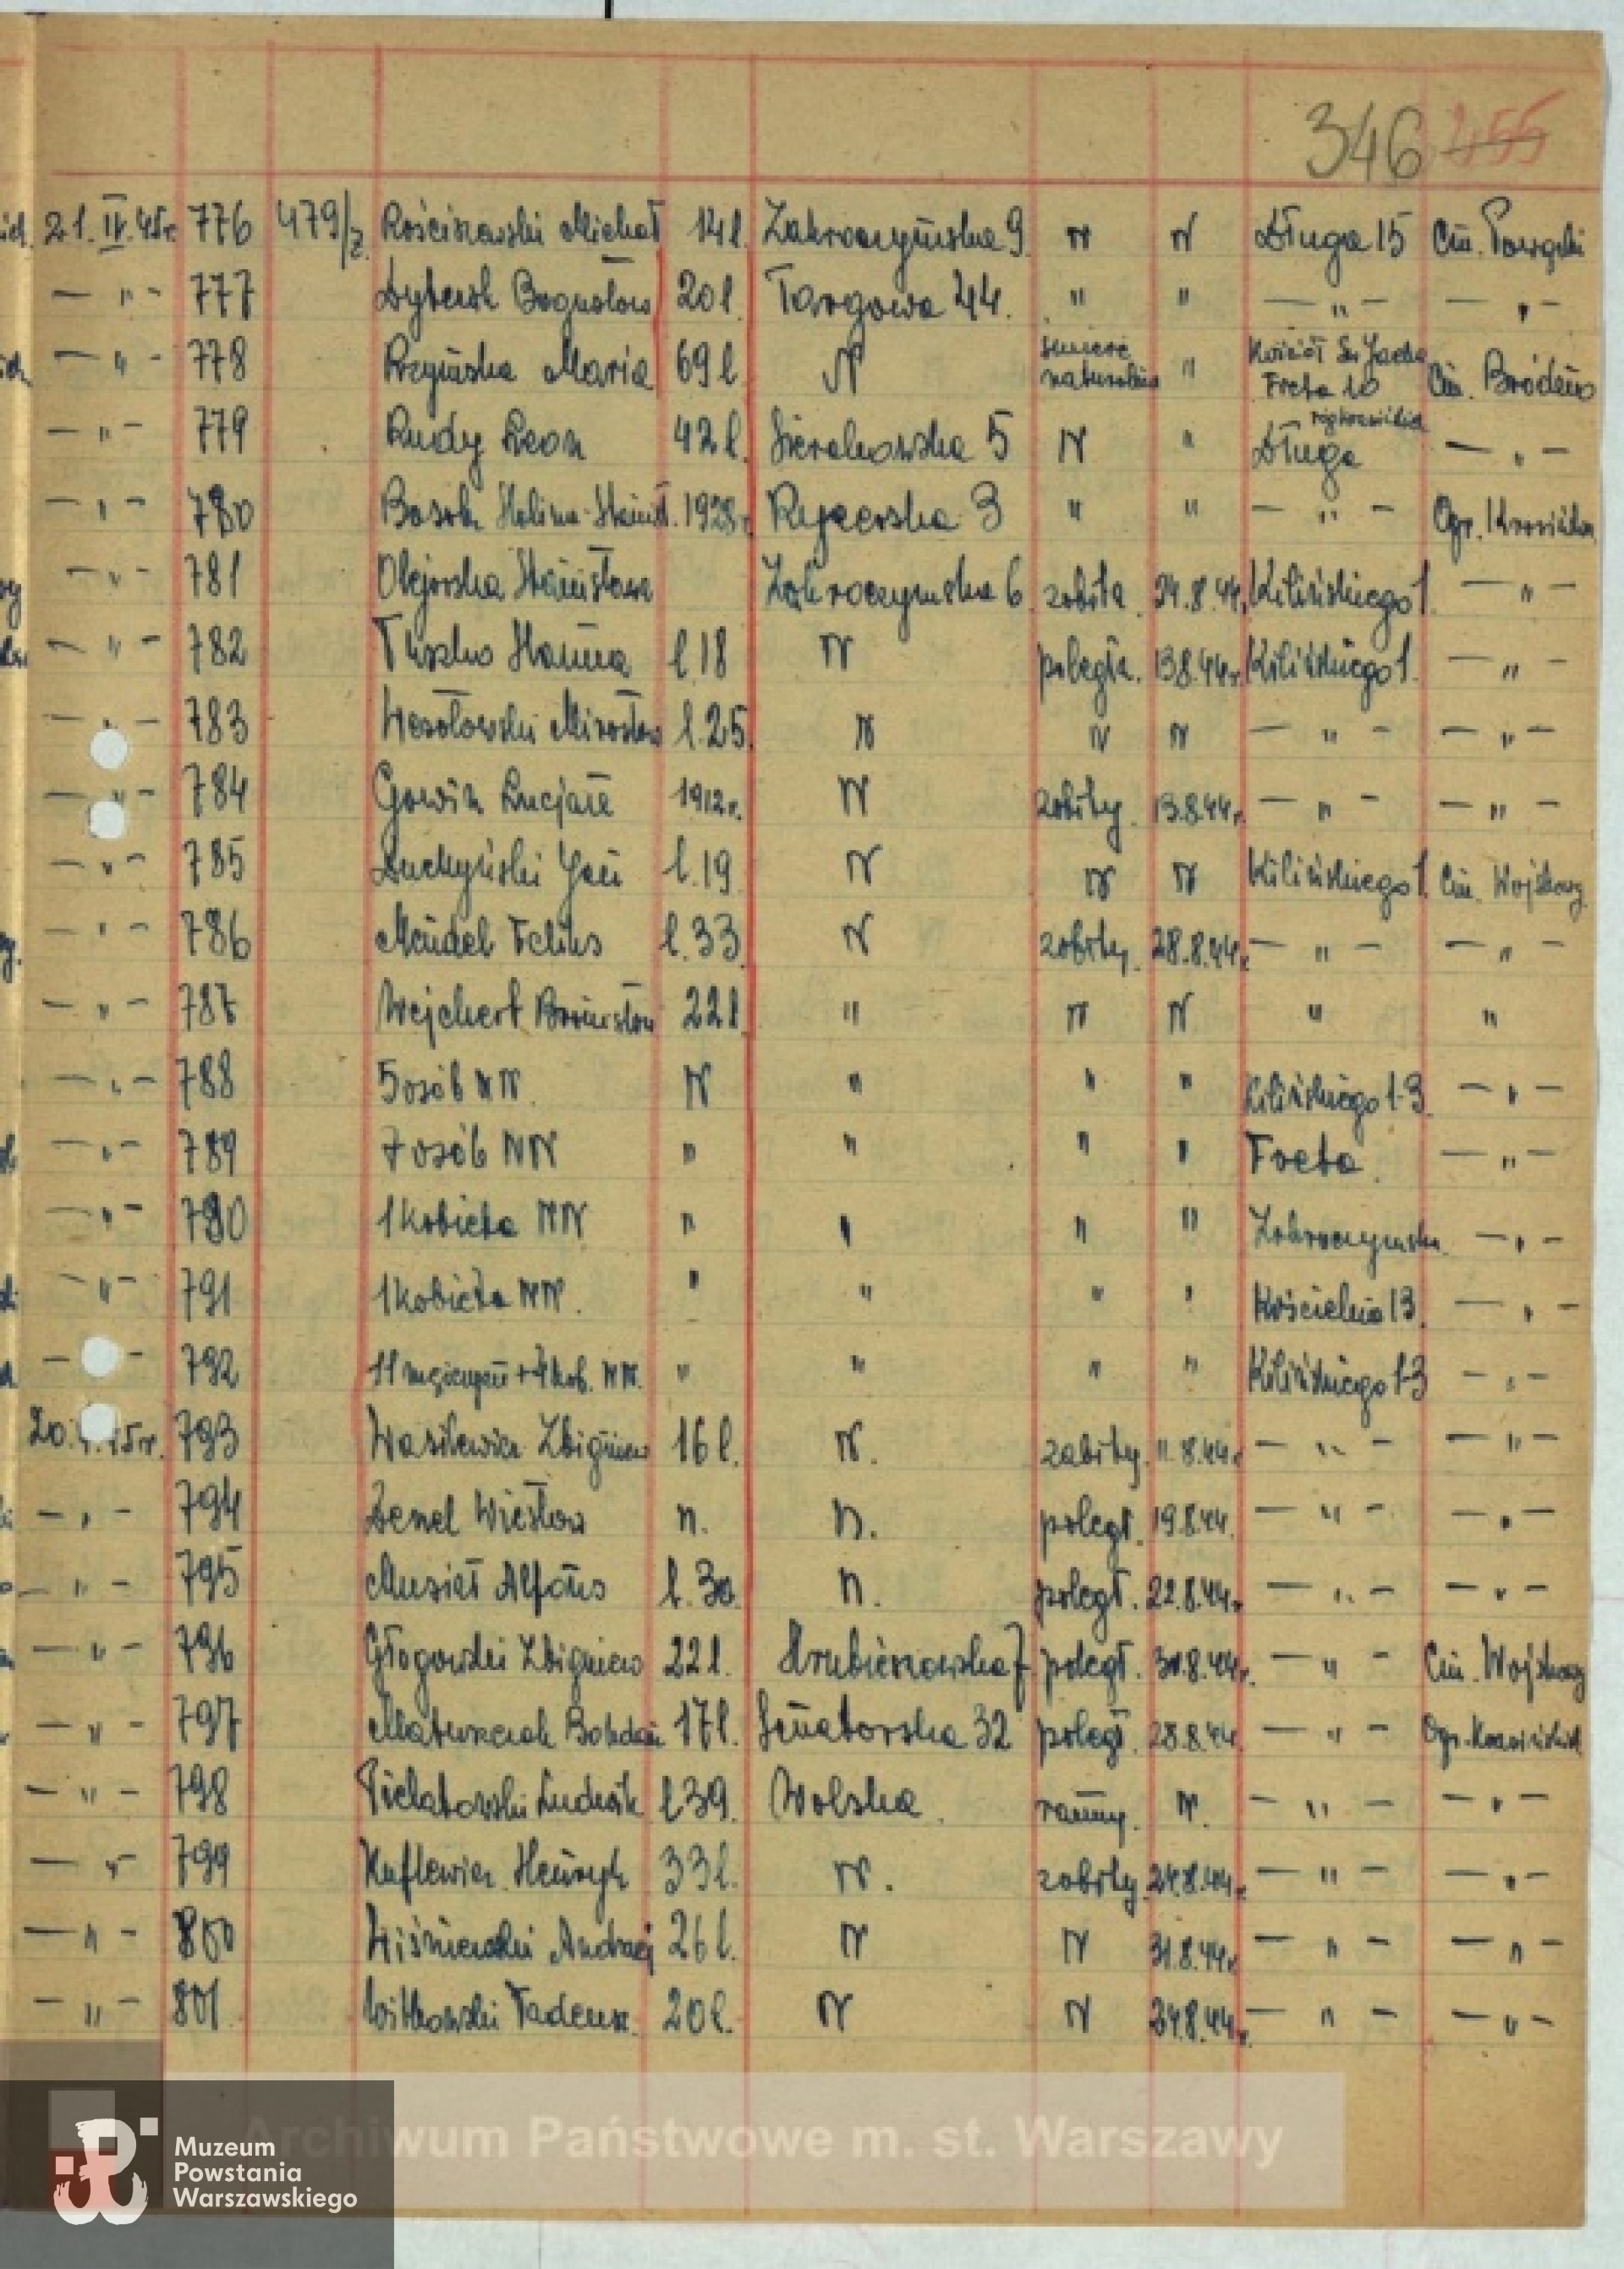 346 255
21.IV.45r. 776 479/z. Rościszewski Michał 14 l. Zakroczymska 9. N N Długa 15 Cm. Powązki
— " - 777 Dybczak Bogusław 20 l. Targowa 44. " " — " - — " -
— " - 778 Rzyńska Maria 69 l. N śmierć naturalna " Kościół Św. Jacka Freta 10 Cm. Bródno
— " - 779 Rudy Leon 42 l. Sierakowska 5 N " Długa — " -
— " - 780 Halina 1928r. Rycerska 3 " " — " - Ogr. Krasińskich
— " - 781 Olejorska Stanisława Zakroczymska 6 zabita 24.8.44r. Kilińskiego 1. — " -
— " - 782 Hanna l. 18 N poległa. 13.8.44r. Kilińskiego 1. — " -
— " - 783 Wesołowski Mirosław l. 25. N N N — " - — " -
— " - 784 Gowin Lucjan 1912r. N zabity. 13.8.44r. — " - — " -
— " - 785 Duchyński Jan l. 19 N N N Kilińskiego 1. Cm. Wojskowy
— " - 786 Mendel Feliks l. 33. N zabity. 28.8.44r. — " - — " -
— " - 787 Wejchert Bronisław 22 l. " N N " "
— " - 788 5 osób NN. N " " " Kilińskiego 1-3. — " -
— " - 789 7 osób NN " " " " Freta. — " -
— " - 790 1 kobieta NN " " " " Zakroczymska — " -
— " - 791 1 kobieta NN. " " " " Kościelna 13. — " -
— - 792 11 mężczyzn + 7 kob. NN. " " " " Kilińskiego 1-3 — " -
20. 45r. 793 Wasilewicz Zbigniew 16 l. N. zabity. 11.8.44r. — " - — " -
— " - 794 Denel Wiesław n. n. poległ. 19.8.44. — " - — " -
— " - 795 Musiał Alfons l. 30. n. poległ. 22.8.44r. — " - — " -
— " - 796 Głogowski Zbigniew 22 l. Hrubieszowska 7 poległ. 31.8.44r. — " - Cm. Wojskowy
— " - 797 Matuszczak Bohdan 17 l. Senatorska 32 poległ. 28.8.44. — " - Ogr. Krasińskich
— " - 798 Pielatowski Ludwik l 39. Wolska. ranny. N. — " - — " -
— " - 799 Kuflewicz Henryk 33 l. N. zabity. 24.8.44r. — " - — " -
— " - 800 Wiśniewski Andrzej 26 l. N N 31.8.44r. — " - — " -
— " - 801. Witkowski Tadeusz. 20 l. N N 24.8.44r. — " - — " -
Archiwum Państwowe m. st. Warszawy
Muzeum
Powstania
Warszawskiego